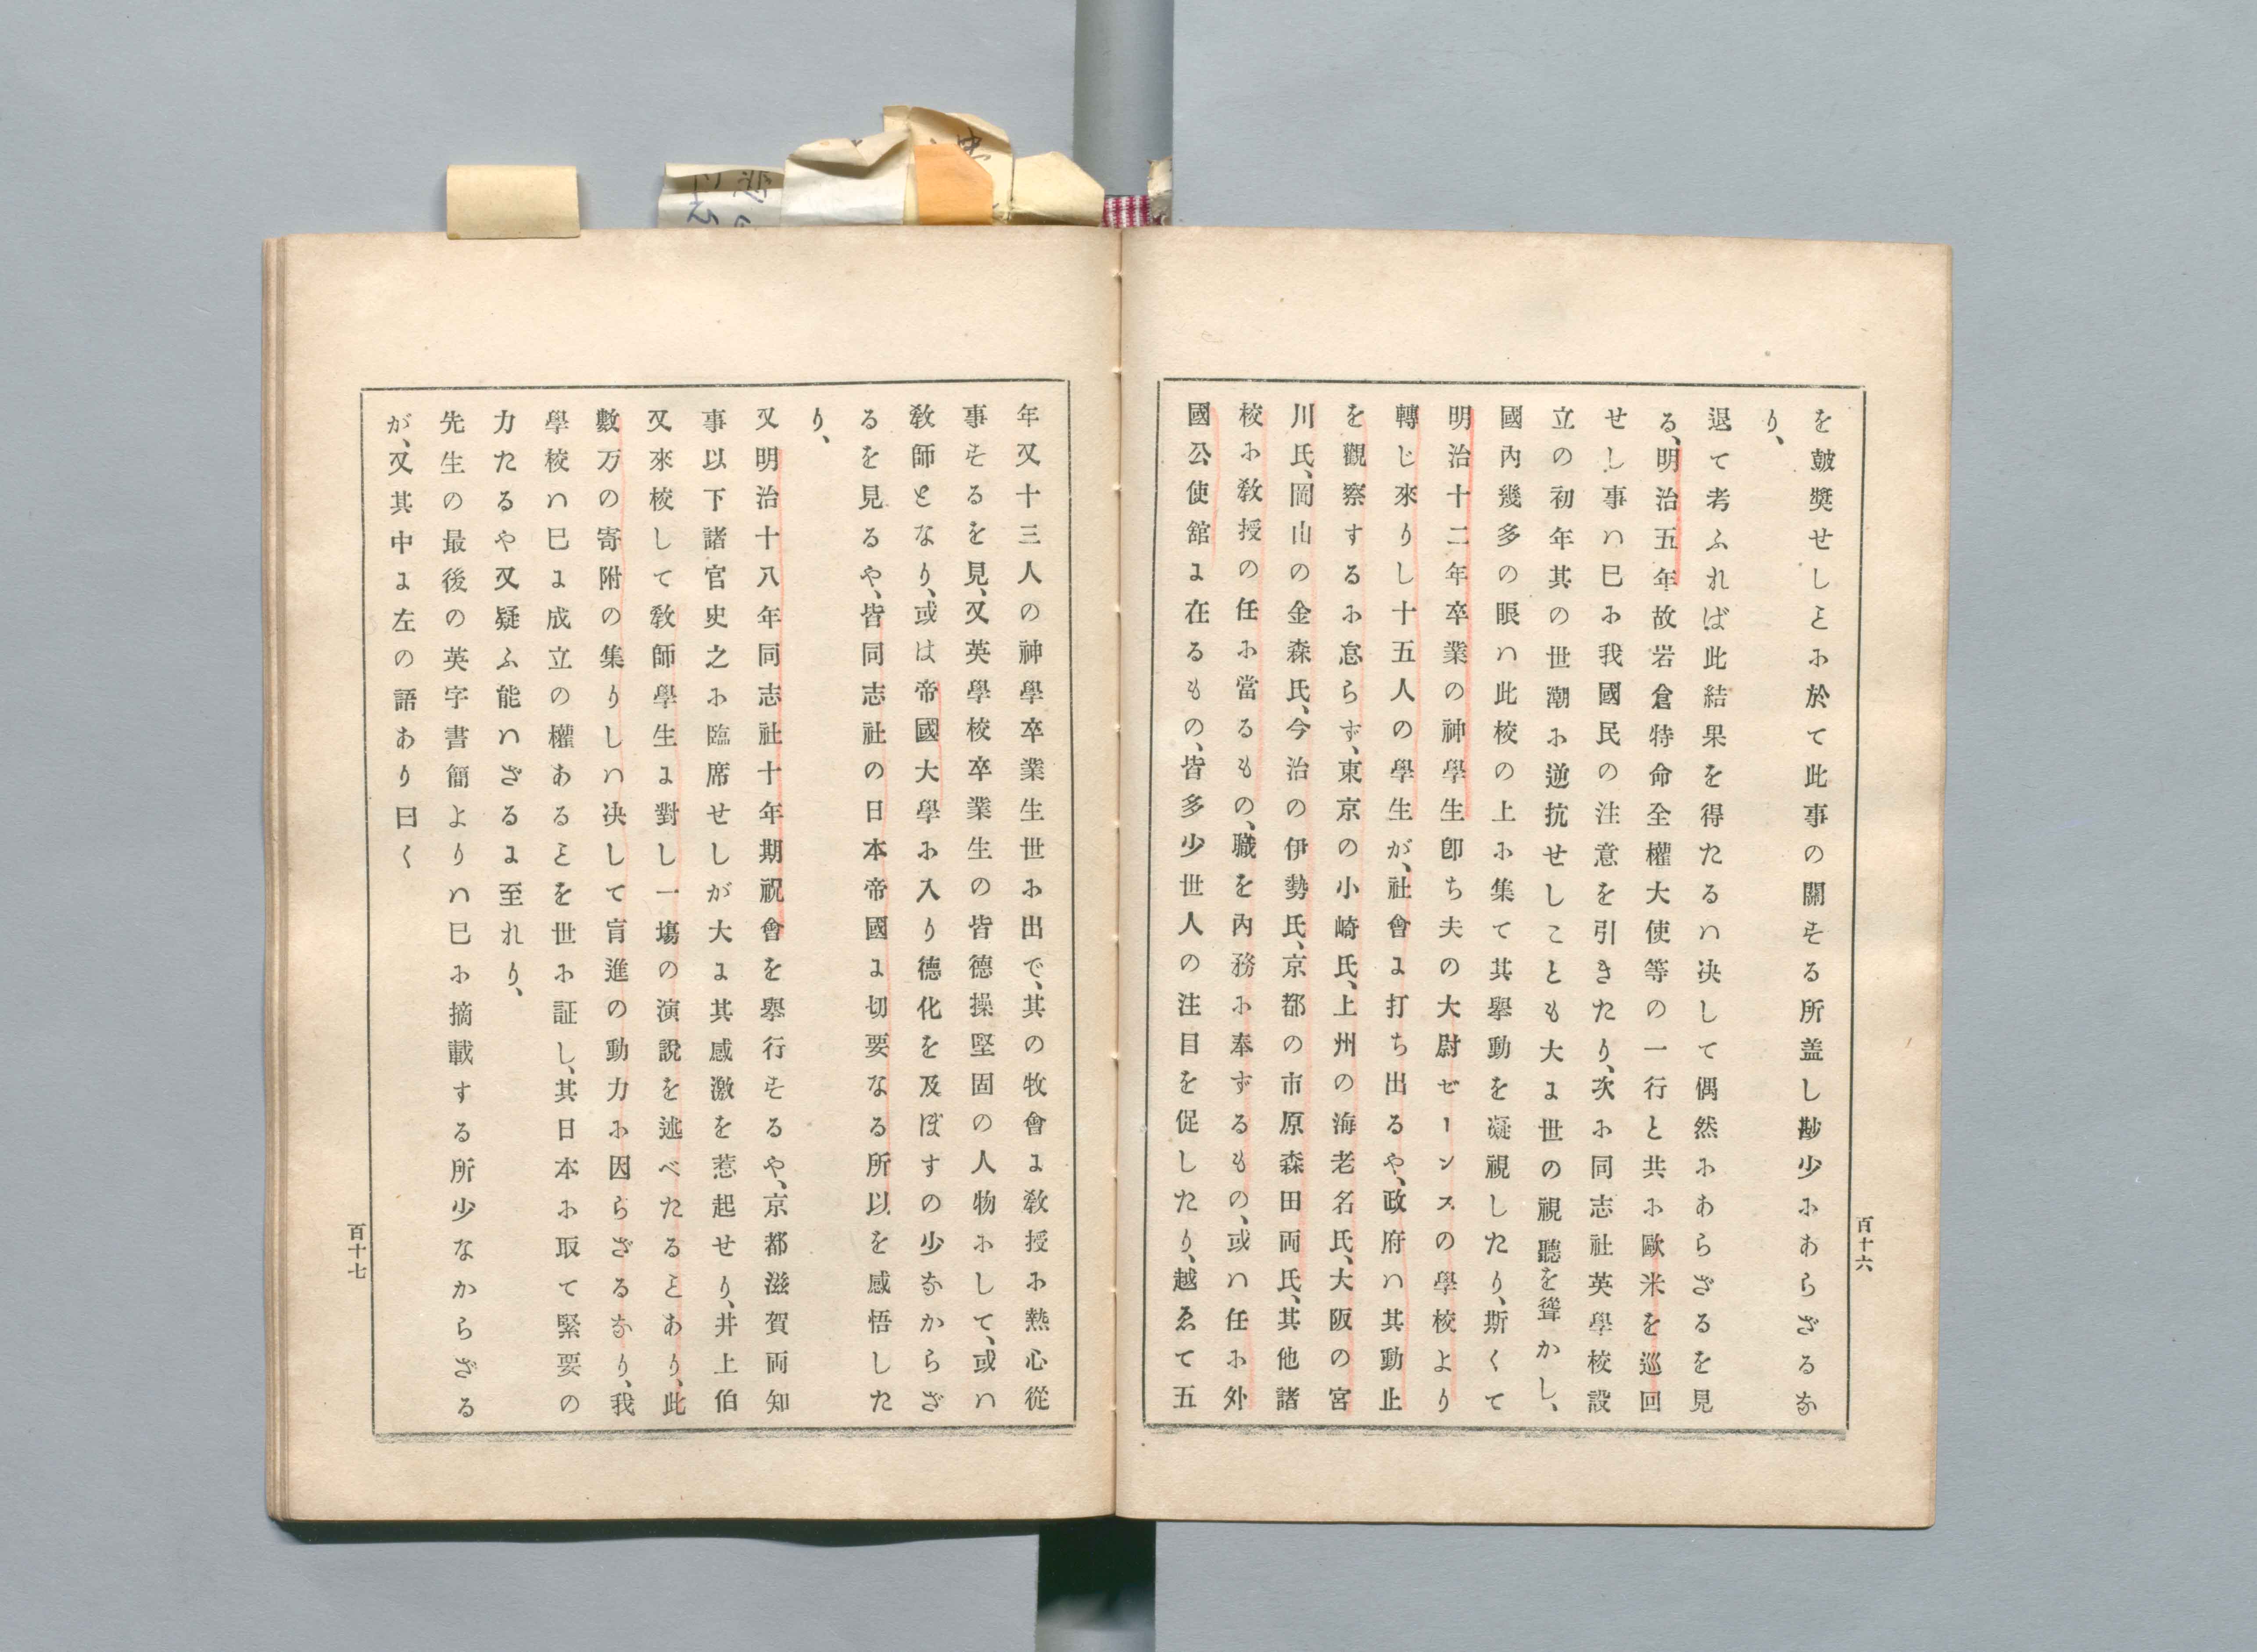 を皷奬せしとに於て此事の關する所盖し尠少にあらざるな
り、
退て考ふれば此結果を得たるハ决して偶然にあらざるを見
る、明治五年故岩倉特命全權大使等の一行と共に歐米を巡回
せし事ハ巳に我國民の注意を引きたり、次に同志社英學校設
立の初年其の世潮に逆抗せしことも大に世の視聽を聳かし、
國內幾多の眼ハ此校の上に集て其擧動を凝視したり、斯くて
明治十二年卒業の神學生卽ち夫の大尉ゼーンスの學校より
轉じ來りし十五人の學生が、社會に打ち出るや、政府ハ其動止
を觀察するに怠らず、東京の小崎氏、上州の海老名氏、大阪の宮
川氏、岡山の金森氏、今治の伊勢氏、京都の市原森田両氏、其他諸
校に敎授の任に當るもの、職を內務に奉ずるもの、或ハ任に外
國公使舘に在るもの、皆多少世人の注目を促したり、越ゑて五
百十六
年又十三人の神學卒業生世に出で、其の牧會に敎授に熱心從
事するを見、又英學校卒業生の皆德操堅固の人物にして、或ハ
敎師となり、或は帝國大學に入り德化を及ぼすの少なからざ
るを見るや、皆同志社の日本帝國に切要なる所以を感悟した
り、
又明治十八年同志社十年期祝會を擧行するや、京都滋賀両知
事以下諸官史之に臨席せしが大に其感激を惹起せり、井上伯
又來校して敎師學生に對し一塲の演說を述べたるとあり、此
數万の寄附の集りしハ决して肓進の動力に因らざるなり、我
學校ハ巳に成立の權あるとを世に証し、其日本に取て緊要の
力たるや又疑ふ能ハざるに至れり、
先生の最後の英字書簡よりハ巳に摘載する所少なからざる
が、又其中に左の語あり曰く
百十七